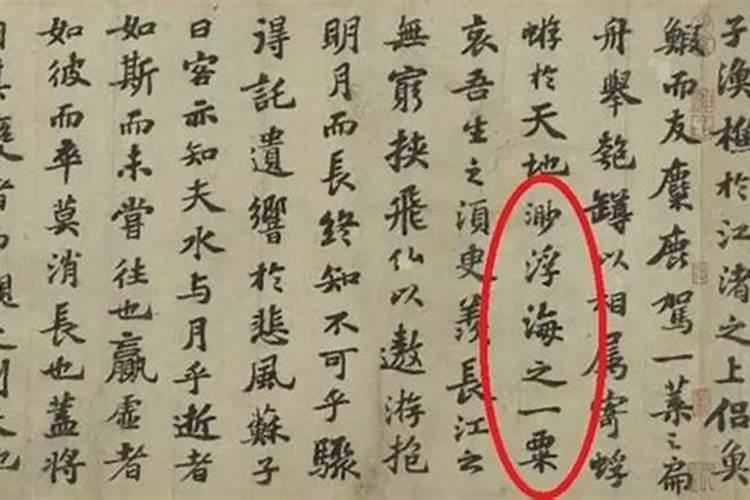 子漁樵於江渚之上侶魚
鰕而友麋鹿駕一葉之扁
舟舉匏罇以相属寄蜉
蝣於天地渺浮海之一粟
哀吾生之須臾羨長江之
無窮挾飛仙以遨游抱
明月而長終知不可乎驟
得託遺響於悲風蘇子
曰客亦知夫水与月乎逝者
如斯而未嘗往也贏虛者
如彼而卒莫消長也蓋將